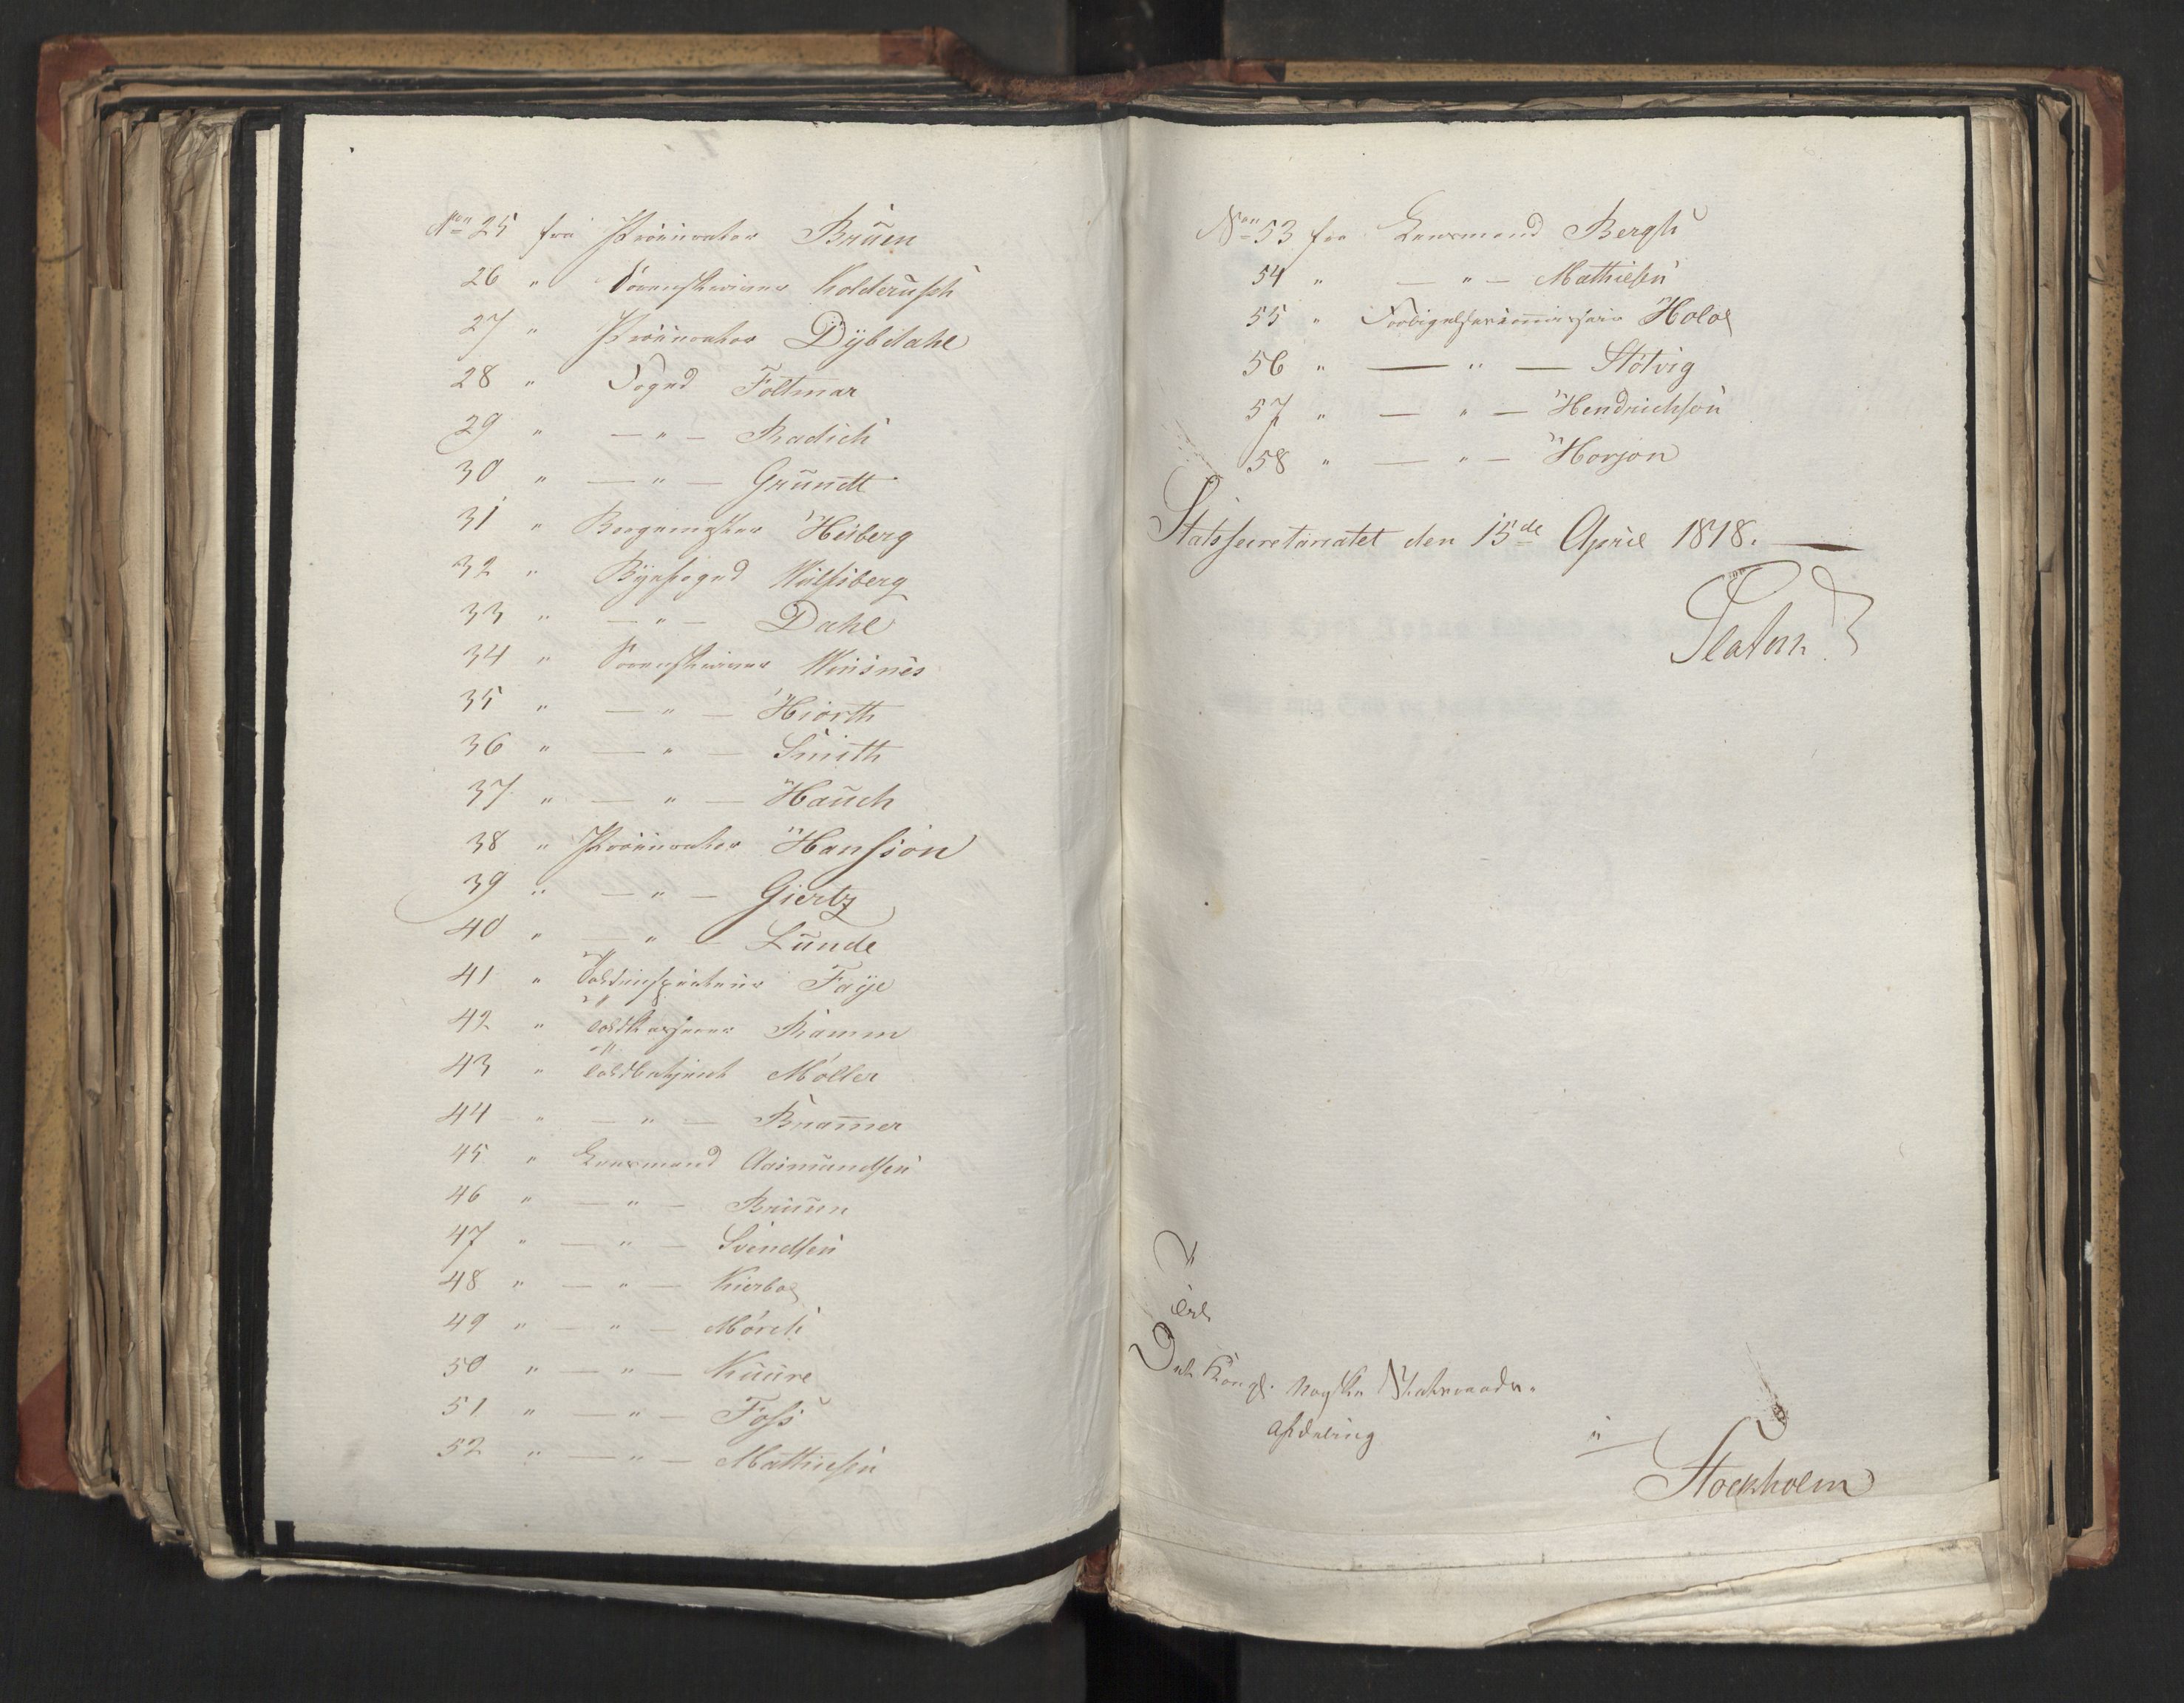 Non 25 fra Procurator Bruen
26 " Sorenskriver Kolderuph
27 " Procurator Dybdahl
28 " Foged Foltmar
29 " — " — Radich
30 " — " — Grundt
31 " Borgemester Heiberg
32 " Byefoged Wulfsberg
33 " — " — Dahl
34 " Sorenskriver Winsnes
35 " — " — Hiorth
36 " — " — Smith
37 " — " — Hauch
38 " Procurator Hansson
39 " — " — Giertz
40 " — " — Lunde
41 " Toldinspecteur Faye
42 " Toldkasserer Ramm
43 " Toldbetjent Møller
44 " — " — Bramer
45 " Lensmand Aasmundsen
46 " — " — Bruun
47 " — " — Svendsen
48 " — " — Kierboe
49 " — " — Mørch
50 " — " — Kuure
51 " — " — Foss
52 " — " — Mathiesen
Non 53 fra Lensmand Bergh
54 " — " — Mathiesen
55 " Forligelsescommissair Holoe
56 " — " — Støtvig
57 " — " — Hendrichson
58 " — " — Horjon
Statssecretariatet den 15de April 1818.
Platou
Til
Det Kongl. Norske Statsraads-
Afdeling i
Stockholm